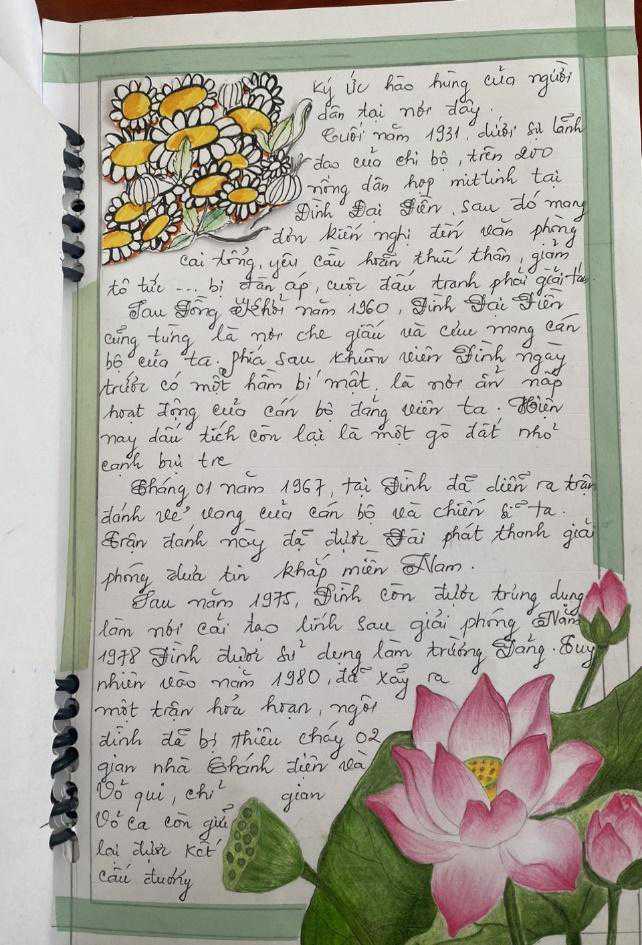 Ký ức hào hùng của người
dân tại nơi đây.
Cuối năm 1931, dưới sự lãnh
đạo của chi bộ, trên 200
nông dân họp mittinh tại
Đình Đại Điền, sau đó mang
đơn kiến nghị đến văn phòng
cai tổng, yêu cầu hoãn thuế thân, giảm
tô tức ... bị đàn áp, cuộc đấu tranh phải giải tán.
Sau Đồng Khởi năm 1960, Đình Đại Điền
cũng từng là nơi che giấu và cưu mang cán
bộ của ta. Phía sau khuôn viên Đình ngày
trước có một hầm bí mật, là nơi ẩn nấp
hoạt động của cán bộ đảng viên ta. Hiện
nay dấu tích còn lại là một gò đất nhỏ
cạnh bụi tre
Tháng 01 năm 1967, tại Đình đã diễn ra trận
đánh vẻ vang của cán bộ và chiến sĩ ta.
Trận đánh này đã được Đài phát thanh giải
phóng đưa tin khắp miền Nam.
Sau năm 1975, Đình còn được trưng dụng
làm nơi cải tạo lính sau giải phóng. Năm
1978 Đình được sử dụng làm trường Đảng. Tuy
nhiên vào năm 1980, đã xảy ra
một trận hoả hoạn, ngôi
đình đã bị thiêu cháy 02
gian nhà Chánh điện và
Võ qui, chỉ gian
Võ ca còn giữ
lại được kết
cấu đương